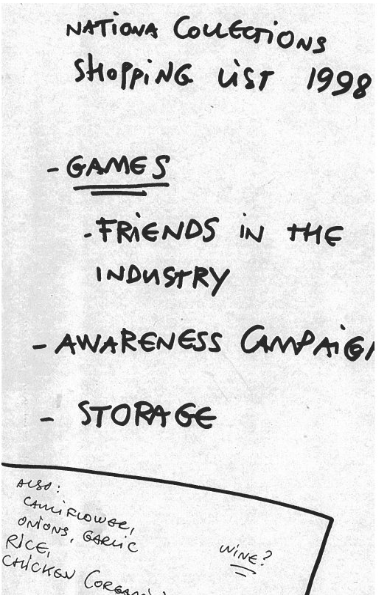 NATIONA COLLECTIONS
SHOPPING LIST 1998
- GAMES
- FRIENDS IN THE
INDUSTRY
- AWARENESS CAMPAIG
- STORAGE
ALSO:
CAULIFLOWER,
ONIONS, GARLIC
RICE,
WINE?
CHICKEN (ORGANI